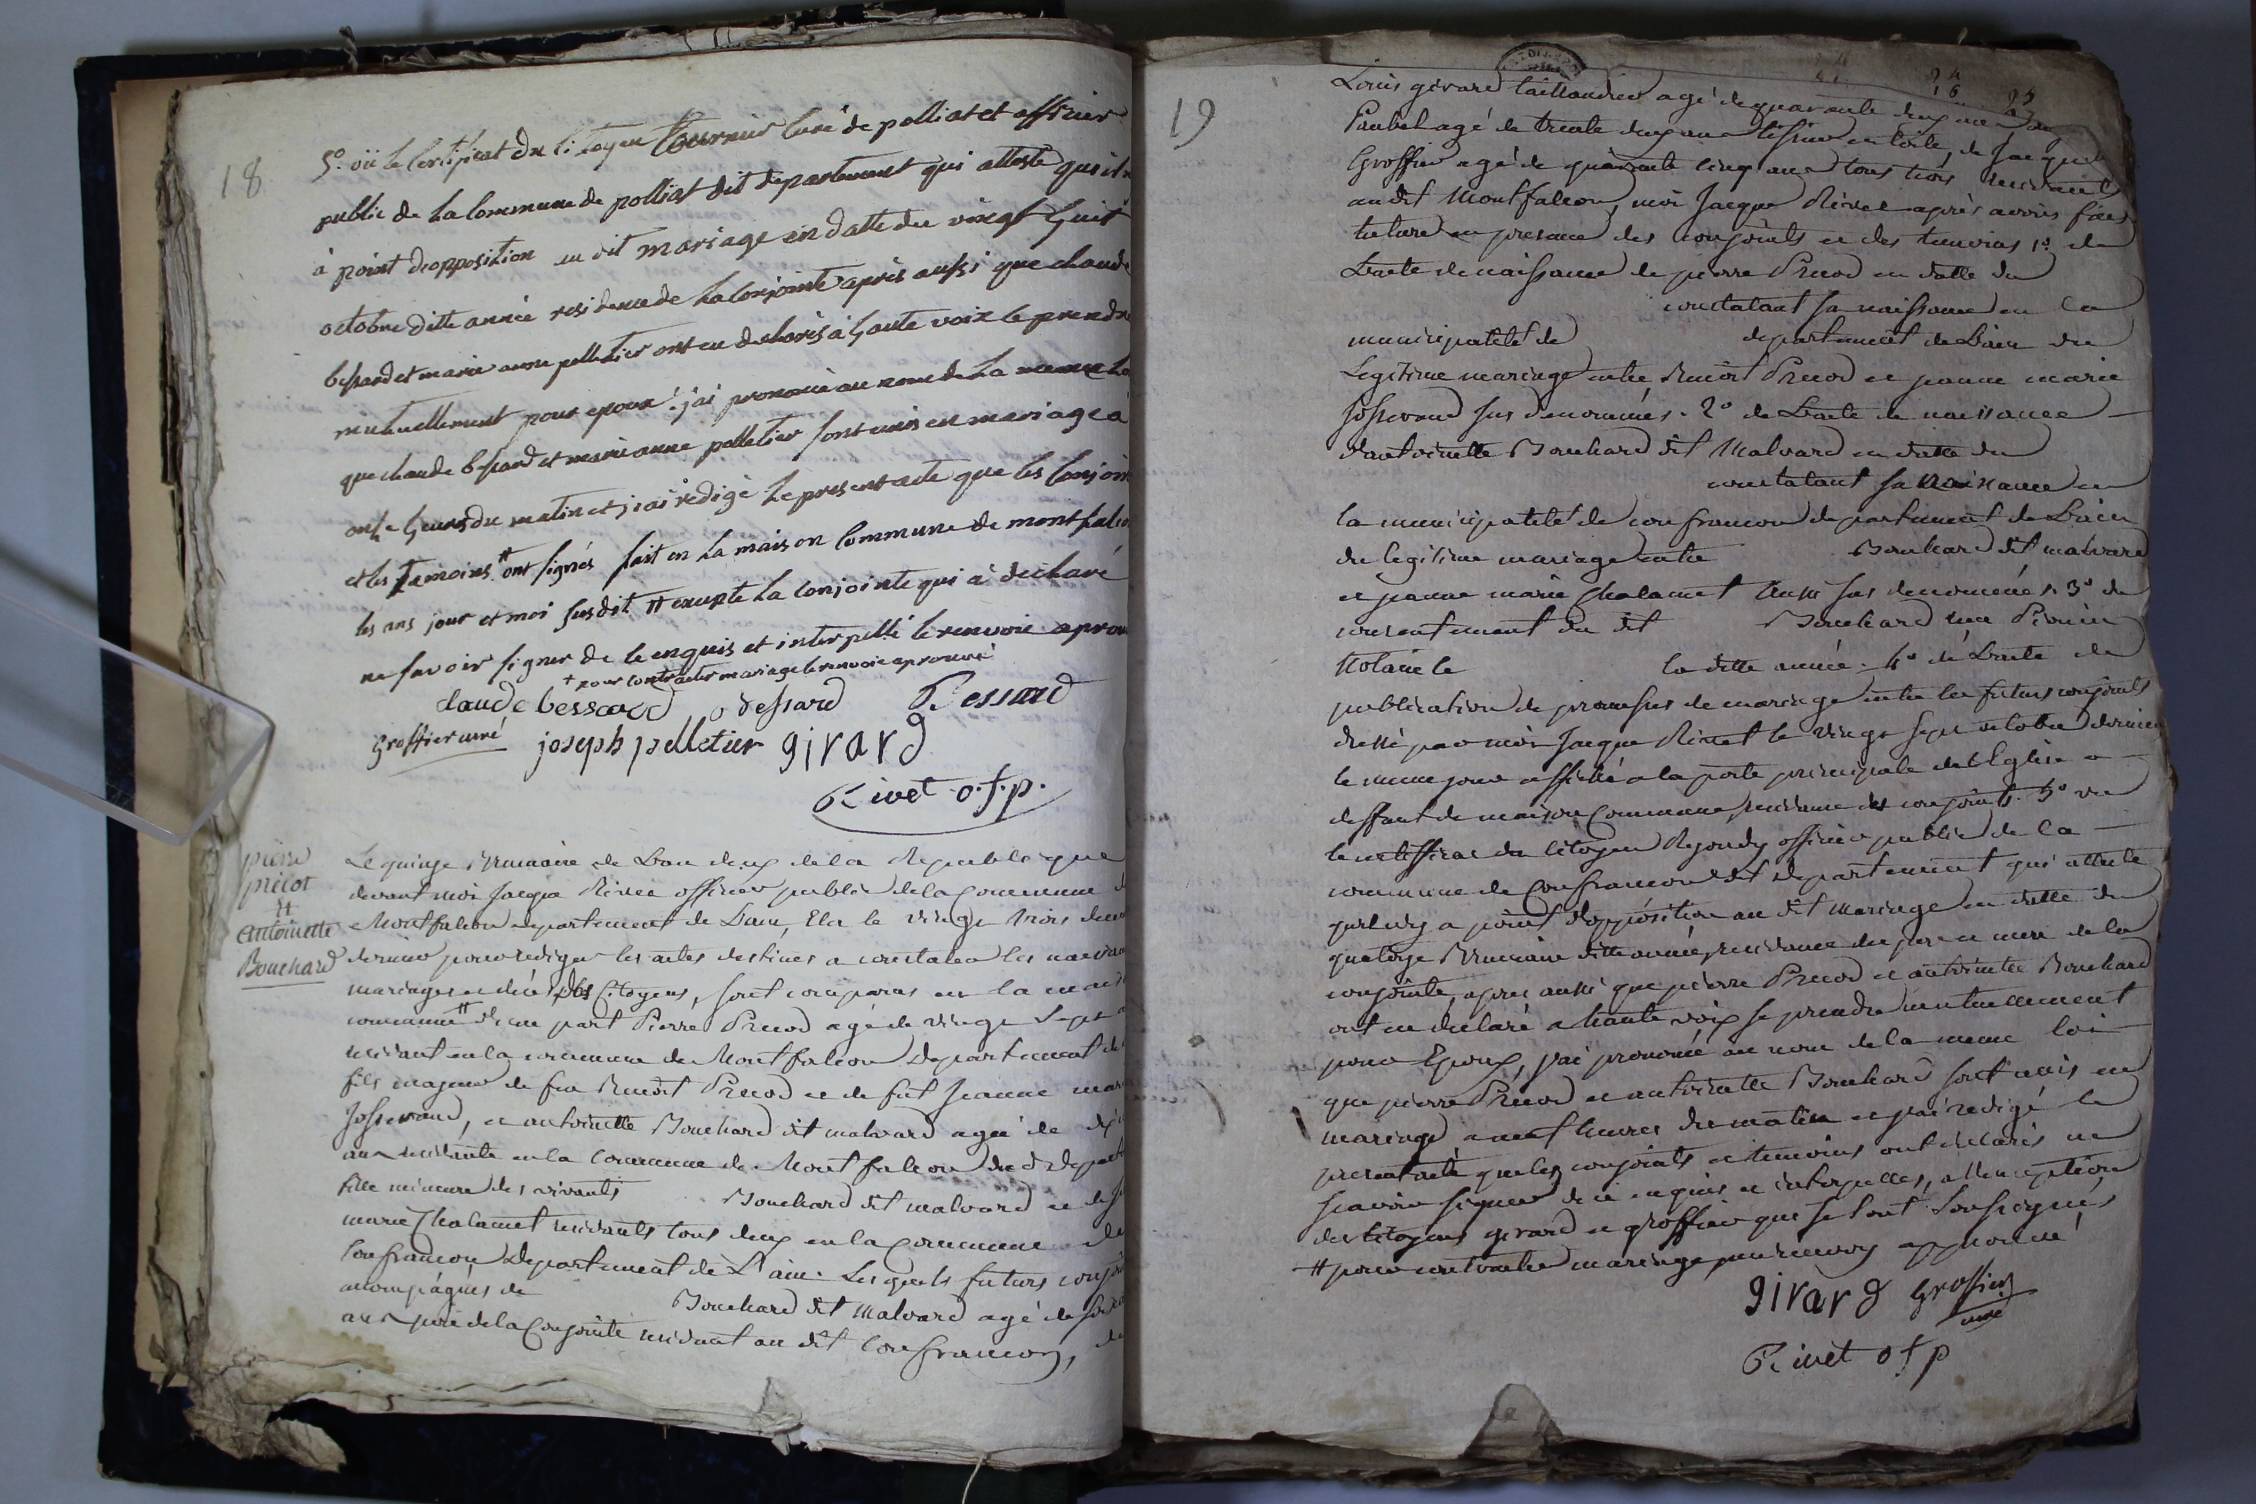 18
5°. vû le Certificat du Citoyen Tournier Curé de polliat et officier
public de La Commune de polliat dit departement qui atteste quil n
à point d'opposition au dit mariage en datte du vingt huit
octobre ditte année residence de La Conjointe après aussi que claude
bessard et marie anne pelletier ont eu declarés à haute voix se prendre
mutuellement pour epoux j'ai prononcé au nom de La meme Loi
que claude bessard et marie anne pelletier sont unis en mariage à
onze heures du matin et j'ai redigé Le present acte que les Conjoints
et les temoins # ont signés fait en La maison Commune de montfalcon
les ans jour et moi susdit # excepte La Conjointe qui à declaré
ne savoir signer de ce enquis et interpellé le renvoie aprouvé
+ pour contracter mariage le renvoie aprouvé
claude bessard bessard Bessard
Groffier curé joseph pelletier girard
Rivet o.f.p.
pierre
précot
et
Antoinette
Bouchard
Le quinze Brumaire de Lan deux de la Republique
devant moi Jacque Rivet officier public de la Commune de
Montfalcon departement de Lain, Elu le vingt trois
dernier pour rediger les actes destinés a constater les naissances
mariages et décés des Citoyens, sont comparus en la maison
commune # d'une part Pierre Precod agé de vingt sept ans
residant en la commune de Montfalcon departement de
fils majeur de feu Benoit Precod et de fut Jeanne marie
Josserand, et antoinette Bouchard dit malvard agée de dix
ans residante en la Commune de Montfalcon dud departe
fille mineure des vivants Bouchard dit malvard et de
marie Chalamet residants tous deux en la Commune de
Confrancon departement de L'ain. Lesquels futurs conjoints
accompagnés de Bouchard dit Malvard agé de
ans pere de la Conjointe residant au dit Confrancon, de
19
24
16
25
Louis gerard taillandier agé de quarante deux ans
agé de trente deux ans tissier en toile, de Jacque
Groffier agé de quarante cinq ans tous trois residants
au dit Montfalcon, moi Jacque Rivet après avoir fait
lecture en presence des conjoints et des temoins 1°. de
Lacte de naissance de pierre Precod en datte du
constatant sa naissance en la
municipalité de departement de Lain du
Legitime mariage entre Benoit Precod et jeanne marie
Josserand sus denommés. 2° de Lacte de naissance
dantoinette Bouchard dit Malvard en datte du
constatant sa naissance en
la municipalité de confrancon departement de Lain
du legitime mariage entre Bouchard dit malvard
et jeanne marie Chalamet aussi sus denommés. 3° du
consentement du dit Bouchard
Notaire le la ditte année. 4° de Lacte de
publication de promesses de mariage entre les futurs conjoints
dressé par moi Jacque Rivet le vingt sept octobre dernier
le meme jour affiché a la porte principale de l'Eglise a
deffaut de maison Commune, residence des conjoints. 5° vu
le certifficat du Citoyen officier public de la
commune de Confrancon dit departement qui atteste
quil ny a point d'opposition au dit mariage en datte du
quatorze Brumaire ditte année, residence des pere et mere de la
conjointe, apres aussi que pierre Precod et antoinette Bouchard
ont eu declaré a haute voix se prendre mutuellement
pour Epoux, j'ai prononcé au nom de la meme loi
que pierre Precod et antoinette Bouchard sont unis en
mariage a neuf heures du matin et j'ai redigé le
present acte que les conjoints et temoins ont declarés ne
scavoir signer de ce enquis et interpelles, a l'exception
des Citoyens girard et groffier qui se sont soussignés
# pour contracter mariage, renvoy approuvé
girard Groffier
curé
Rivet o f p